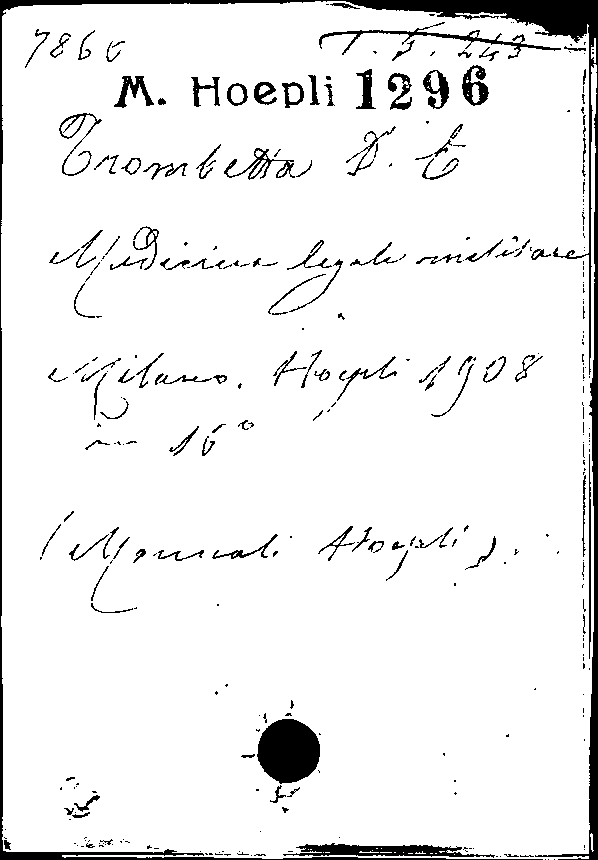 7866 1. 5. 243
M. Hoepli 1296
Trombetta D. E
Medicina legale militare
Milano. Hoepli 1908
in 16°
(Manuali Hoepli).